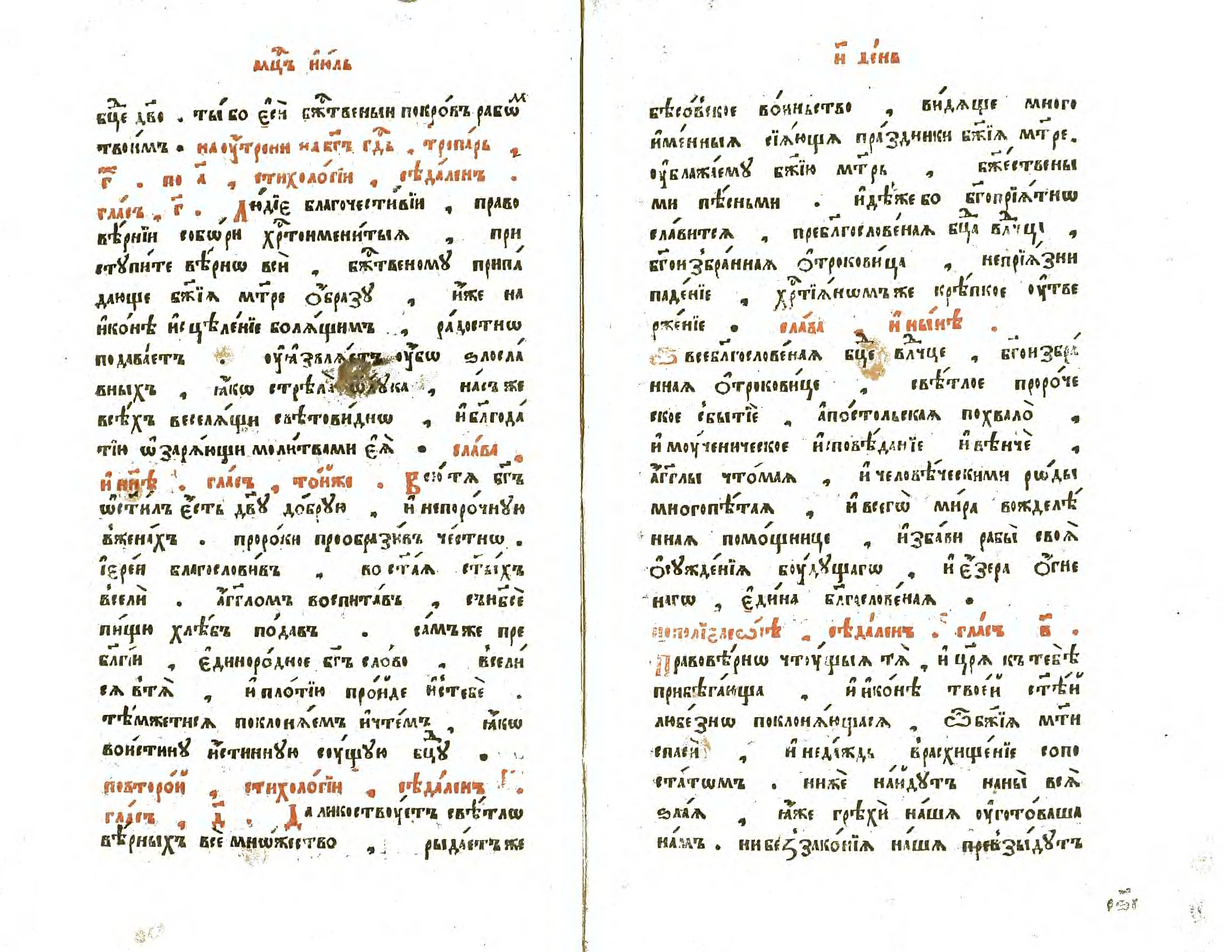 мцⷭ҇ъ и҆ю́ль
бц҃е дв҃о . ты́ бо є҆сѝ бж҃твеныи покро́въ рабѡⷨ
твои́мъ . на ѹ҆́трени на бг҃ъ гдⷭ҇ь , тропа́рь ,
г҃ . по а҃ , стихоло́гїи , сѣда́ленъ .
гла́съ , г҃ . Лю́дїє благочести́вїи , право
вѣ́рнїи собѡ́ри хрⷭ҇тоимени́тыѧ , при
ступи́те вѣ́рнѡ всѝ , бж҃твеному припа́
дающе бж҃їѧ мт҃ре ѻ҆́бразꙋ , и҆́же на
и҆ко́нѣ и҆сцѣле́нїе болѧ́щимъ , ра́достнѡ
подава́етъ . ѹ҆ѧзвлѧ́етъ ѹ҆́бѡ ѕлосла́
вныхъ , ꙗ҆́кѡ стрѣла̀ ѿлꙋ́ка , на́съ же
всѣ́хъ веселѧ́щи свѣтови́днѡ , и҆ благода́
тїю ѡ҆зарѧ́ющи моли́твами є҆ѧ̀ . сла́ва .
и҆ нн҃ѣ . гла́съ , то́йже . Всю́ тѧ бг҃ъ
ѡ҆чⷭ҇тилъ є҆́сть дв҃ꙋ до́брꙋю , и҆ непоро́чнꙋю
вженахъ . проро́ки прообрази́въ че́стнѡ .
і҆єре́и благослови́въ , во ст҃а́ѧ ст҃ы́хъ
вселѝ . а҆́гг҃ломъ воспита́въ , съ нб҃сѐ
пи́щю хлѣ́бъ пода́въ . са́мъ же пре
бл҃гі́и , є҆диноро́дное бг҃ъ сло́во , всели́
сѧ втѧ̀ , и҆ пло́тїю про́йде и҆стебѐ .
тѣ́мжетисѧ поклонѧ́емъ и҆чте́мъ , ꙗ҆́кѡ
вои́стинꙋ и҆́стиннꙋю сѹ́щꙋю бцⷣꙋ .
повторо́й , стихоло́гїи , сѣда́ленъ .
гла́съ , д҃ . Да ликоствꙋ́етъ свѣ́тлѡ
вѣ́рныхъ всѐ мнѡ́жество , рыда́етъ же
н҃ де́нь
бѣсо́вское во́иньство , ви́дѧще много
и҆ме́нныѧ сїѧ́ющѧ пра́здники бж҃їѧ мт҃ре.
ѹ҆блажа́емꙋ бж҃їю мт҃рь , бж҃ествены
ми пѣ́сньми . и҆дѣ́же бо бг҃опрїѧ́тнѡ
сла́витсѧ , пребл҃гослове́наѧ бцⷣа влⷣчцѧ ,
бг҃ои҆збра́ннаѧ ѻ҆трокови́ца , непрїѧ́зни
паде́нїе , хрⷭ҇тїѧ́нѡмъ же крѣ́пкое ѹ҆тве
рже́нїе . сла́ва , и҆ ны́нѣ .
Ѽ всебл҃гослове́наѧ бцⷣе влⷣчце , бг҃ои҆збра́
ннаѧ ѻ҆трокови́це , свѣ́тлое проро́че
ское сбытїѐ , а҆по́стольскаѧ похвало̀ ,
и҆ моу́ченическое и҆сповѣ́данїе и҆ вѣнчѐ ,
а҆́гг҃лы что́маѧ , и҆ человѣ́ческими рѡ́ды
многопѣ́таѧ , и҆ всегѡ̀ ми́ра вожделѣ́
ннаѧ помо́щнице , и҆зба́ви рабы̀ своѧ̀
ѻ҆сꙋжде́нїѧ боу́дꙋщагѡ , и҆ є҆́зера ѻ҆́гне
нагѡ , є҆ди́на благослове́наѧ .
по поли́елеѡ́сѣ , сѣда́ленъ . гла́съ в҃ .
Правовѣ́рнѡ чтꙋ́щыѧ тѧ̀ , и҆ цр҃ѧ къ тебѣ́
прибѣга́юща , и҆ и҆ко́нѣ твое́й ст҃ѣ́й
любе́знѡ поклонѧ́ющасѧ , ѽ бж҃їѧ мт҃и
спасѝ , и҆ неда́ждь врасхище́нїе сопо
ста́тѡмъ . нижѐ на́йдꙋтъ наны̀ всѧ̀
ѕла́ѧ , ꙗ҆́же грѣхѝ на́шѧ ѹ҆гото́ваша
на́мъ . ни беззако́нїѧ на́шѧ превзы́дꙋтъ